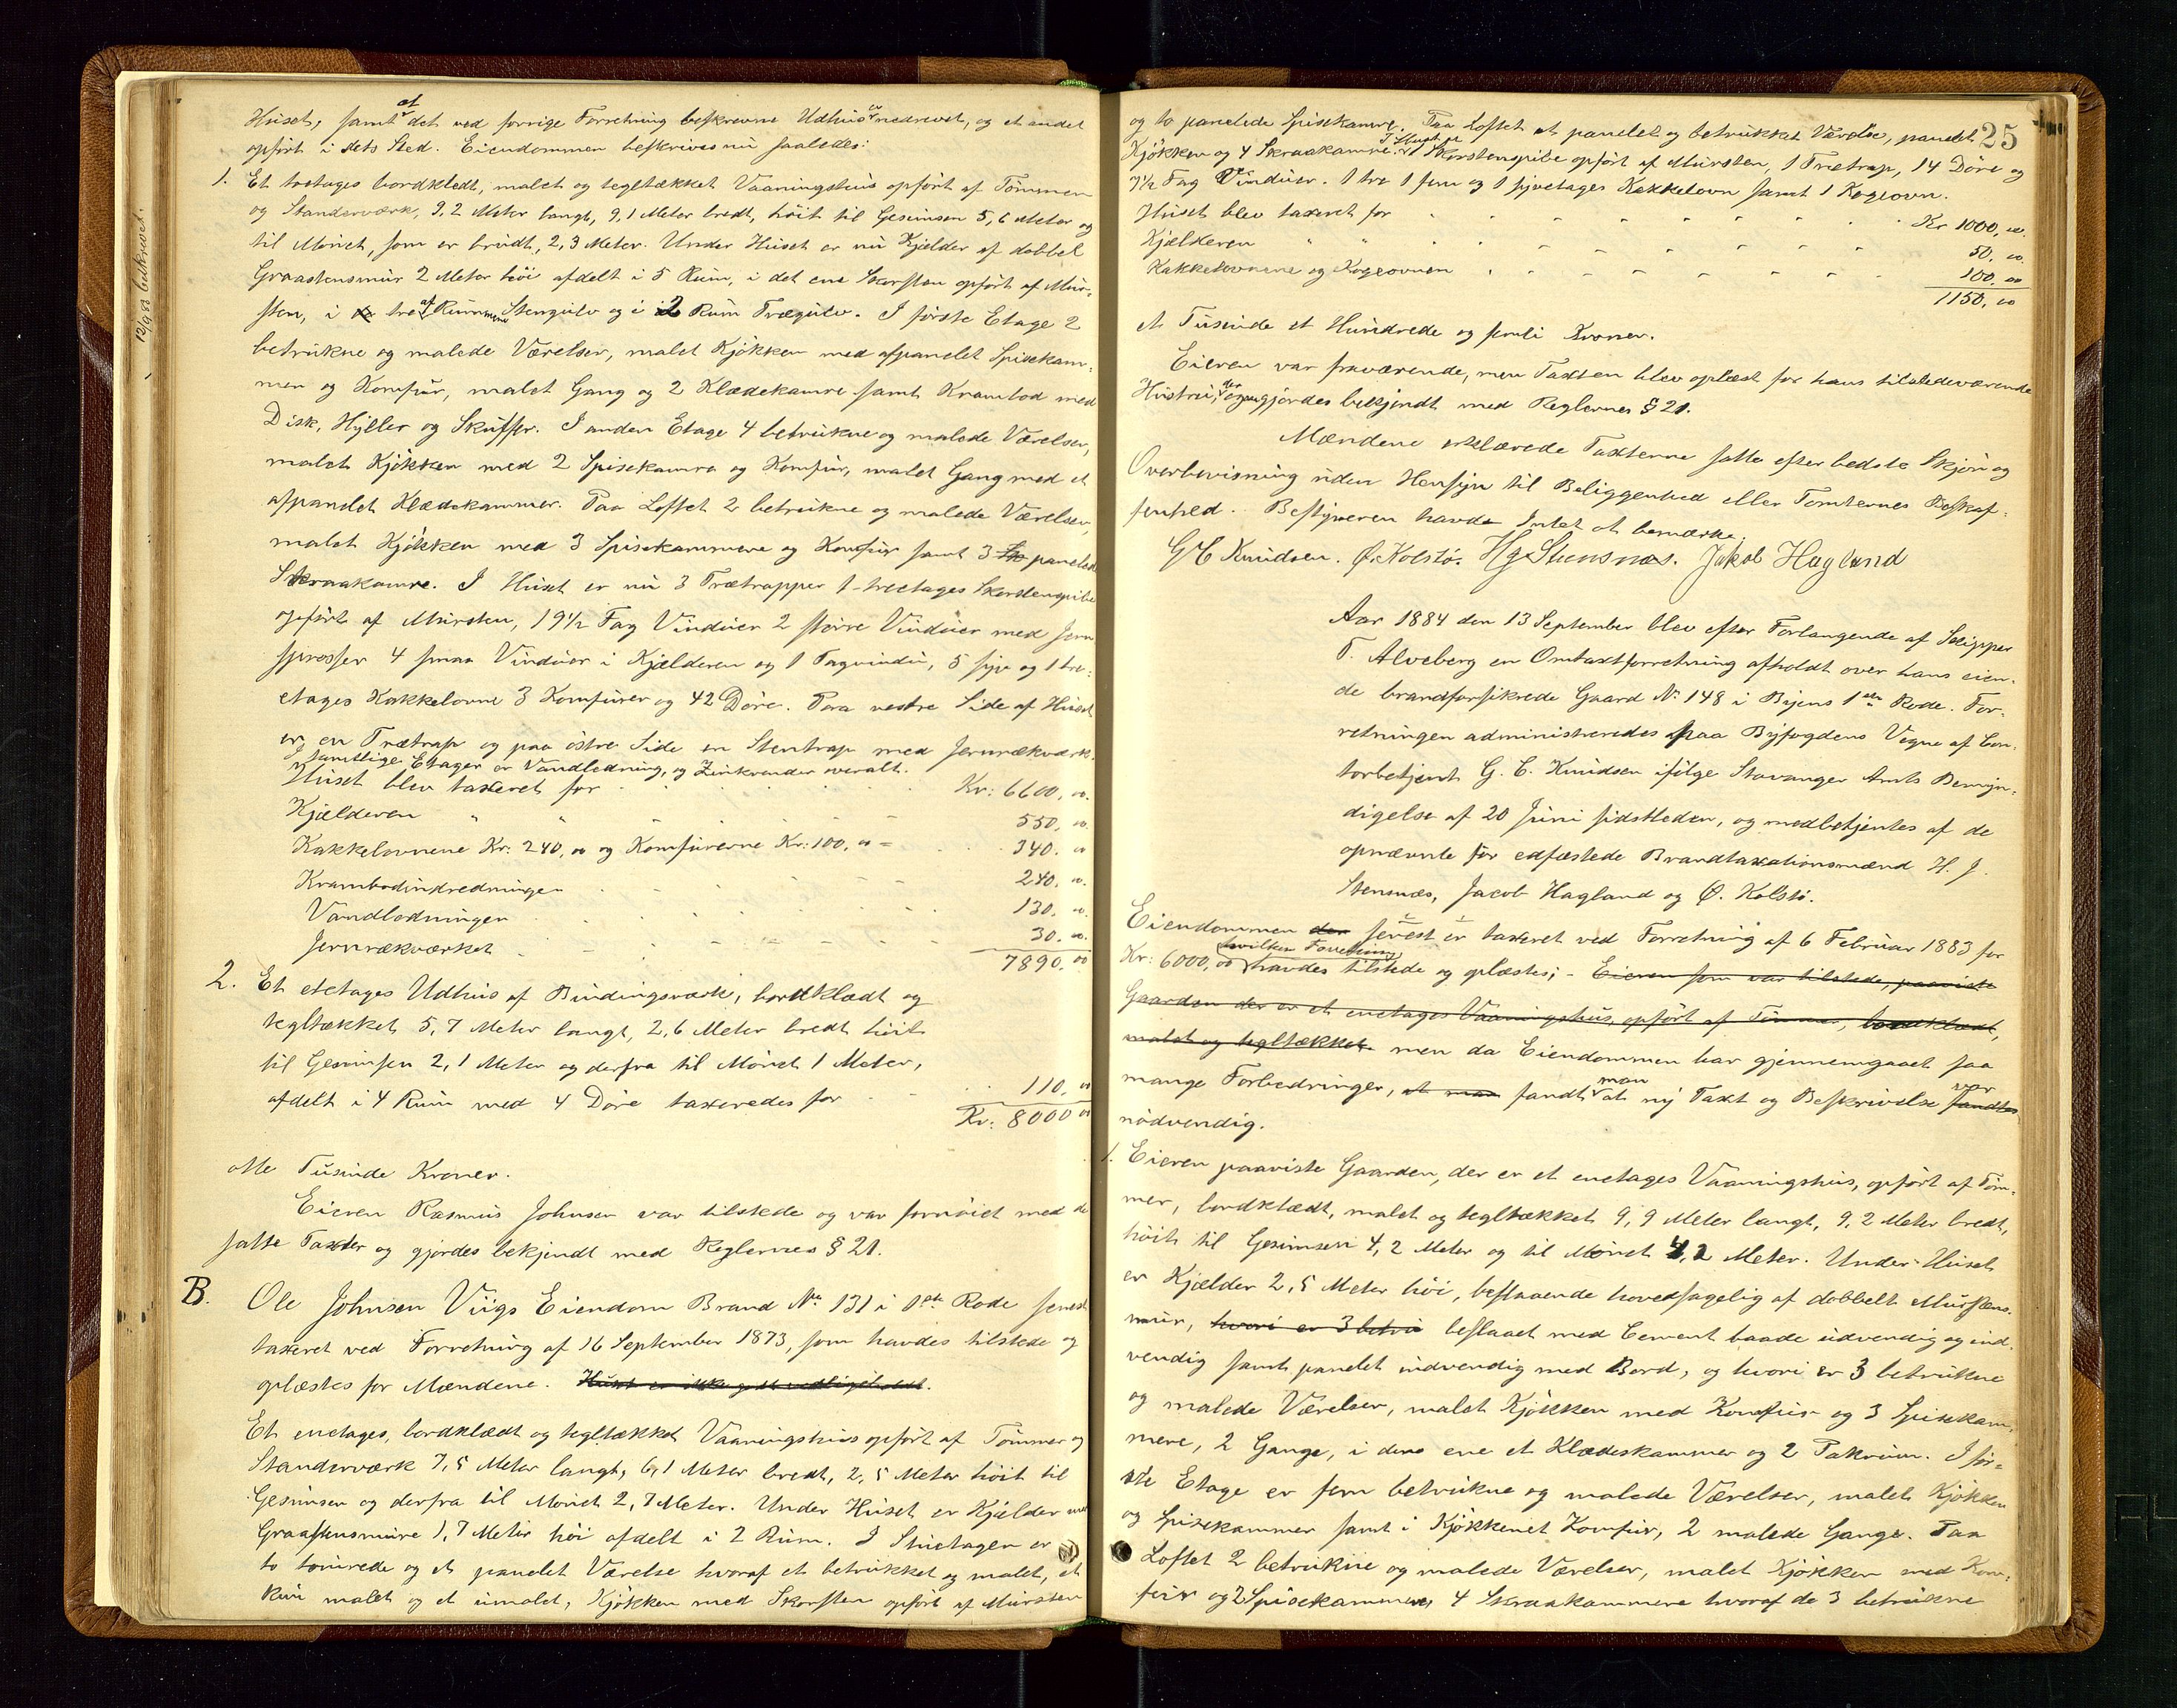 12/9 83 bekrevet.
Huset, samt at det ved forrige Forretning beskrevne Udhus er nedrevet, og et andet
opført i dets Sted. Eiendommen beskrives nu saaledes:
1. Et toetages bordklædt, malet og tegltækket Vaaningshus opført af Tømmer
og Standerværk, 9,2 Meter langt, 9,1 Meter bredt, høit til Gesimsen 5,6 Meter og
til Mønet, som er brudt, 2,3 Meter. Under Huset er nu Kjelder af dobbel
Graastensmur 2 Meter høi afdelt i 5 Rum, i det ene Skorsten opført af Mur-
sten, i tre af Rummene Stengulv og i 2 Rum Trægulv. I første Etage 2
betrukne og malede Værelser, malet Kjøkken med afpanelet Spisekam-
mer og Komfur, malet Gang og 2 Klædekamre samt Krambod med
Disk, Hyller og Skuffer. I anden Etage 4 betrukne og malede Værelser,
malet Kjøkken med 2 Spisekamre og Komfur, malet Gang med et
afpanelet Klædekammer. Paa Loftet 2 betrukne og malede Værelser,
malet Kjøkken med 3 Spisekammere og Komfur samt 3 Sk panelede
Skraakamre. I Huset er nu 3 Trætrapper 1 treetages Skorstenspibe
opført af Mursten, 19½ Fag Vinduer 2 større Vinduer med Jern
sprosser 4 smaa Vinduer i Kjælderen og 1 Tagvindu, 5 syv og 1 tre-
etages Kakkelovne 3 Komfurer og 42 Døre. Paa vestre Side af Huset
er en Trætrap og paa østre Side en Stentrap med Jernrækværk.
I samtlige Etager er Vandledning, og Zinkrender overalt.
Huset blev taxeret for Kr: 6600, 00.
Kjælderen " " 550, 00.
Kakkelovnene Kr: 240, 00 og Komfurerne Kr: 100, 00 = 340. 00
Krambodindredningen 240, 00.
Vandledningen 130. 00.
Jernrækværket 30. 00.
7890. 00
2. Et etetages Udhus af Bindingsværk, bordklædt og
tegltækket 5,7 Meter langt, 2,6 Meter bredt høit
til Gesimsen 2,1 Meter og derfra til Mønet 1 Meter,
afdelt i 4 Rum med 4 Døre taxeredes for 110, 00
Kr: 8000 00
otte Tusinde Kroner.
Eieren Rasmus Johnsen var tilstede og var fornøiet med de
satte Taxter og gjordes bekjendt med Reglernes § 21.
B. Ole Johnsen Viigs Eiendom Brand No 131 i 1ste Rode senest
taxeret ved Forretning af 16 September 1873, som havdes tilstede og
oplæstes for Mændene. Huset er ikke godt vedligeholdt.
Et enetages, bordklædt og tegltækket Vaaningshus opført af Tømmer og
Standerværk 7,5 Meter langt, 6,1 Meter bredt, 2,5 Meter høit til
Gesimsen og derfra til Mønet 2,7 Meter. Under Huset er Kjælder med
Graastensmure 1,7 Meter høi afdelt i 2 Rum. I Stuetagen er
to tømrede og et panelet Værelse hvoraf et betrukket og malet, et
kun malet og et umalet, Kjøkken med Skorsten opført af Mursten
25
og to panelede Spisekamre. Paa Loftet et panelet og betrukket Værelse, panelet
Kjøkken og 4 Skraakamre. I Huset er 1 Skorstenspibe opført af Mursten, 1 Trætrap, 14 Døre og
7½ Fag Vinduer. 1 tre 1 fem og 1 syvetages Kakkelovn samt 1 Kogeovn.
Huset blev taxeret for Kr 1000, 00.
Kjælderen " " 50. 00.
Kakkelovnene og Kogeovnen 100. 00
1150, 00
et Tusinde et Hundrede og femti Kroner.
Eieren var fraværende, men Taxten blev oplæst for hans tilstedeværende
Hustru, der ogsaa gjordes bekjendt med Reglernes § 21.
Mændene erklærede Taxterne satte efter bedste Skjøn og
Overbevisning uden Hensyn til Beliggenhed eller Tomternes Beskaf-
fenhed. Bestyreren havde Intet at bemærke.
G C Knudsen. Ø. Kolstø. Hg Stensnæs. Jakob Hagland
Aar 1884 den 13 September blev efter Forlangende af Skipper
T. Alveberg en Omtaxtforretning afholdt over hans eien-
de brandforsikrede Gaard No 148 i Byens 1ste Rode. For-
retningen administreredes paa Byfogdens Vegne af Con-
torbetjent G. C. Knudsen ifølge Stavanger Amts Bemyn-
digelse af 20 Juni sidstleden, og medbetjentes af de
opnævnte før edfæstede Brandtaxationsmænd H. J.
Stensnæs, Jacob Hagland og Ø. Kolstø.
Eiendommen den senest er taxeret ved Forretning af 6 Februar 1883 for
Kr: 6000,00 hvilken Forretning havdes tilstede og oplæstes; - Eieren som var tilstede, paaviste
Gaarden der er et enetages Vaaningshus, opført af Tømmer, bordklædt,
malet og tegltækket. men da Eiendommen har gjennemgaaet saa
mange Forbedringer, at man fandt man at ny Taxt og Beskrivelse fandtes var
nødvendig.
1. Eieren paaviste Gaarden, der er et enetages Vaaningshus, opført af Tøm-
mer, bordklædt, malet og tegltækket 9,9 Meter langt, 9,2 Meter bredt,
høit til Gesimsen 4,2 Meter og til Mønet 4,2 Meter. Under Huset
er Kjælder 2,5 Meter høi, bestaaende hovedsagelig af dobbelt Murstens-
mur, hvori er 3 betru beslaaet med Cement baade udvendig og ind-
vendig samt panelet indvendig med Bord, og hvori er 3 betrukne
og malede Værelser, malet Kjøkken med Komfur og 3 Spisekam-
mere, 2 Gange, i den ene et Klædeskammer og 2 Pakrum. I før-
ste Etage er fem betrukne og malede Værelser, malet Kjøkken
og Spisekammer samt i Kjøkkenet Komfur, 2 malede Gange. Paa
Loftet 2 betrukne og malede Værelser, malet Kjøkken med Kom-
fur og 2 Spisekammere, 4 Skraakammere hvoraf de 3 betrukne